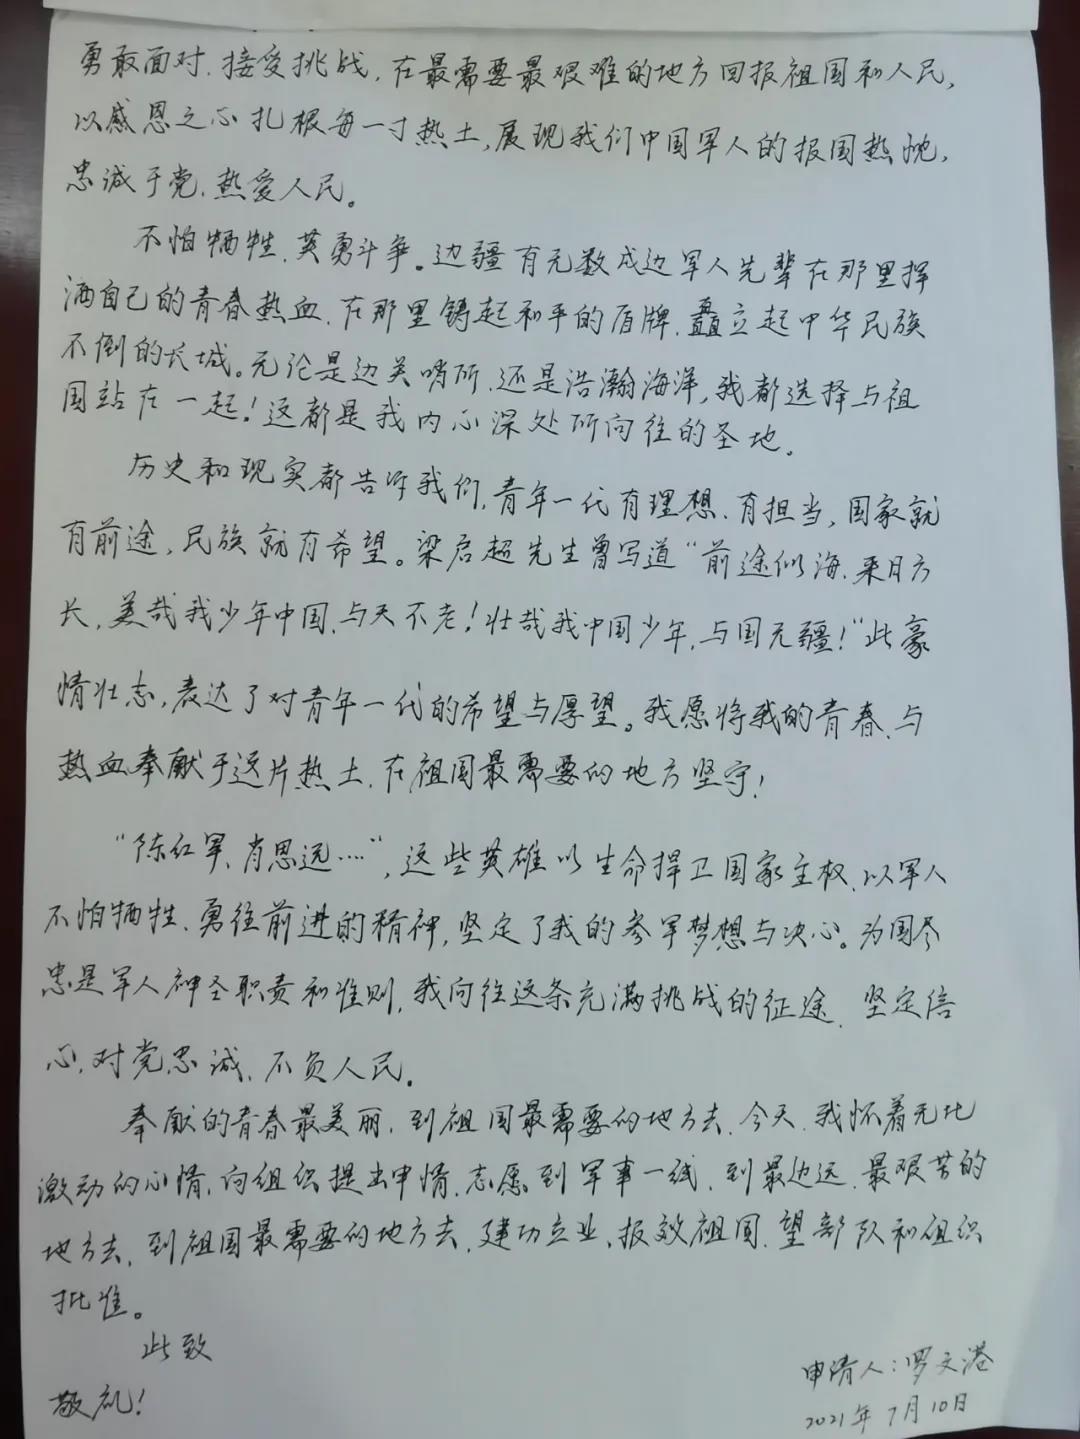 勇敢面对、接受挑战,在最需要最艰难的地方回报祖国和人民,
以感恩之心扎根每一寸热土,展现我们中国军人的报国热忱,
忠诚于党、热爱人民。
不怕牺牲、英勇斗争。边疆有无数戍边军人先辈在那里挥
洒自己的青春热血、在那里铸起和平的盾牌、矗立起中华民族
不倒的长城。无论是边关哨所、还是浩瀚海洋,我都选择与祖
国站在一起!这都是我内心深处所向往的圣地。
历史和现实都告诉我们,青年一代有理想、有担当,国家就
有前途,民族就有希望。梁启超先生曾写道“前途似海、来日方
长,美哉我少年中国、与天不老!壮哉我中国少年,与国无疆!”此豪
情壮志,表达了对青年一代的希望与厚望。我愿将我的青春、与
热血奉献于这片热土、在祖国最需要的地方坚守!
“陈红军、肖思远……”,这些英雄以生命捍卫国家主权、以军人
不怕牺牲、勇往前进的精神,坚定了我的参军梦想与决心。为国尽
忠是军人神圣职责和准则,我向往这条充满挑战的征途、坚定信
心、对党忠诚、不负人民。
奉献的青春最美丽,到祖国最需要的地方去、今天、我怀着无比
激动的心情,向组织提出申情、志愿到军事一线、到最边远、最艰苦的
地方去、到祖国最需要的地方去、建功立业、报效祖国、望部队和组织
批准。
此致
敬礼!
申请人:罗文港
2021年7月10日